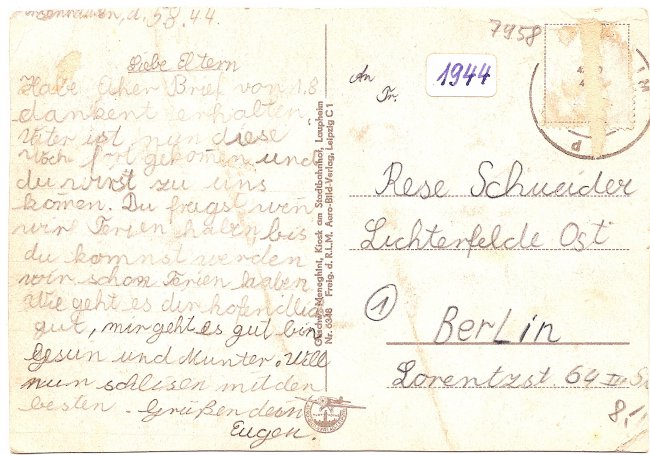 d. 5.8.44.
Liebe Eltern
Habe Euher Brief von 1.8
dankent erhalten.
Vater ist nun diese
Woch fort gekomen und
du wirst zu uns
komen. Du fragst wen
wir Ferien haben bis
du kommst werden
wir schon Ferien haben
Wie geht es dir hofendlich
gut, mir geht es gut bin
gesun und Munter. Will
nun schlisen mit den
besten Grüßen dein
Eugen.
Meneghini, Kiosk am Stadtbahnhof, Laupheim
Nr. 6348 Freig. d. R.L.M. Aero-Bild-Verlag, Leipzig C 1
7958
1944
An
Fr.
Rese Schneider
Lichterfelde Ost
1 Berlin
Lorentzst 64 III
8,-
d